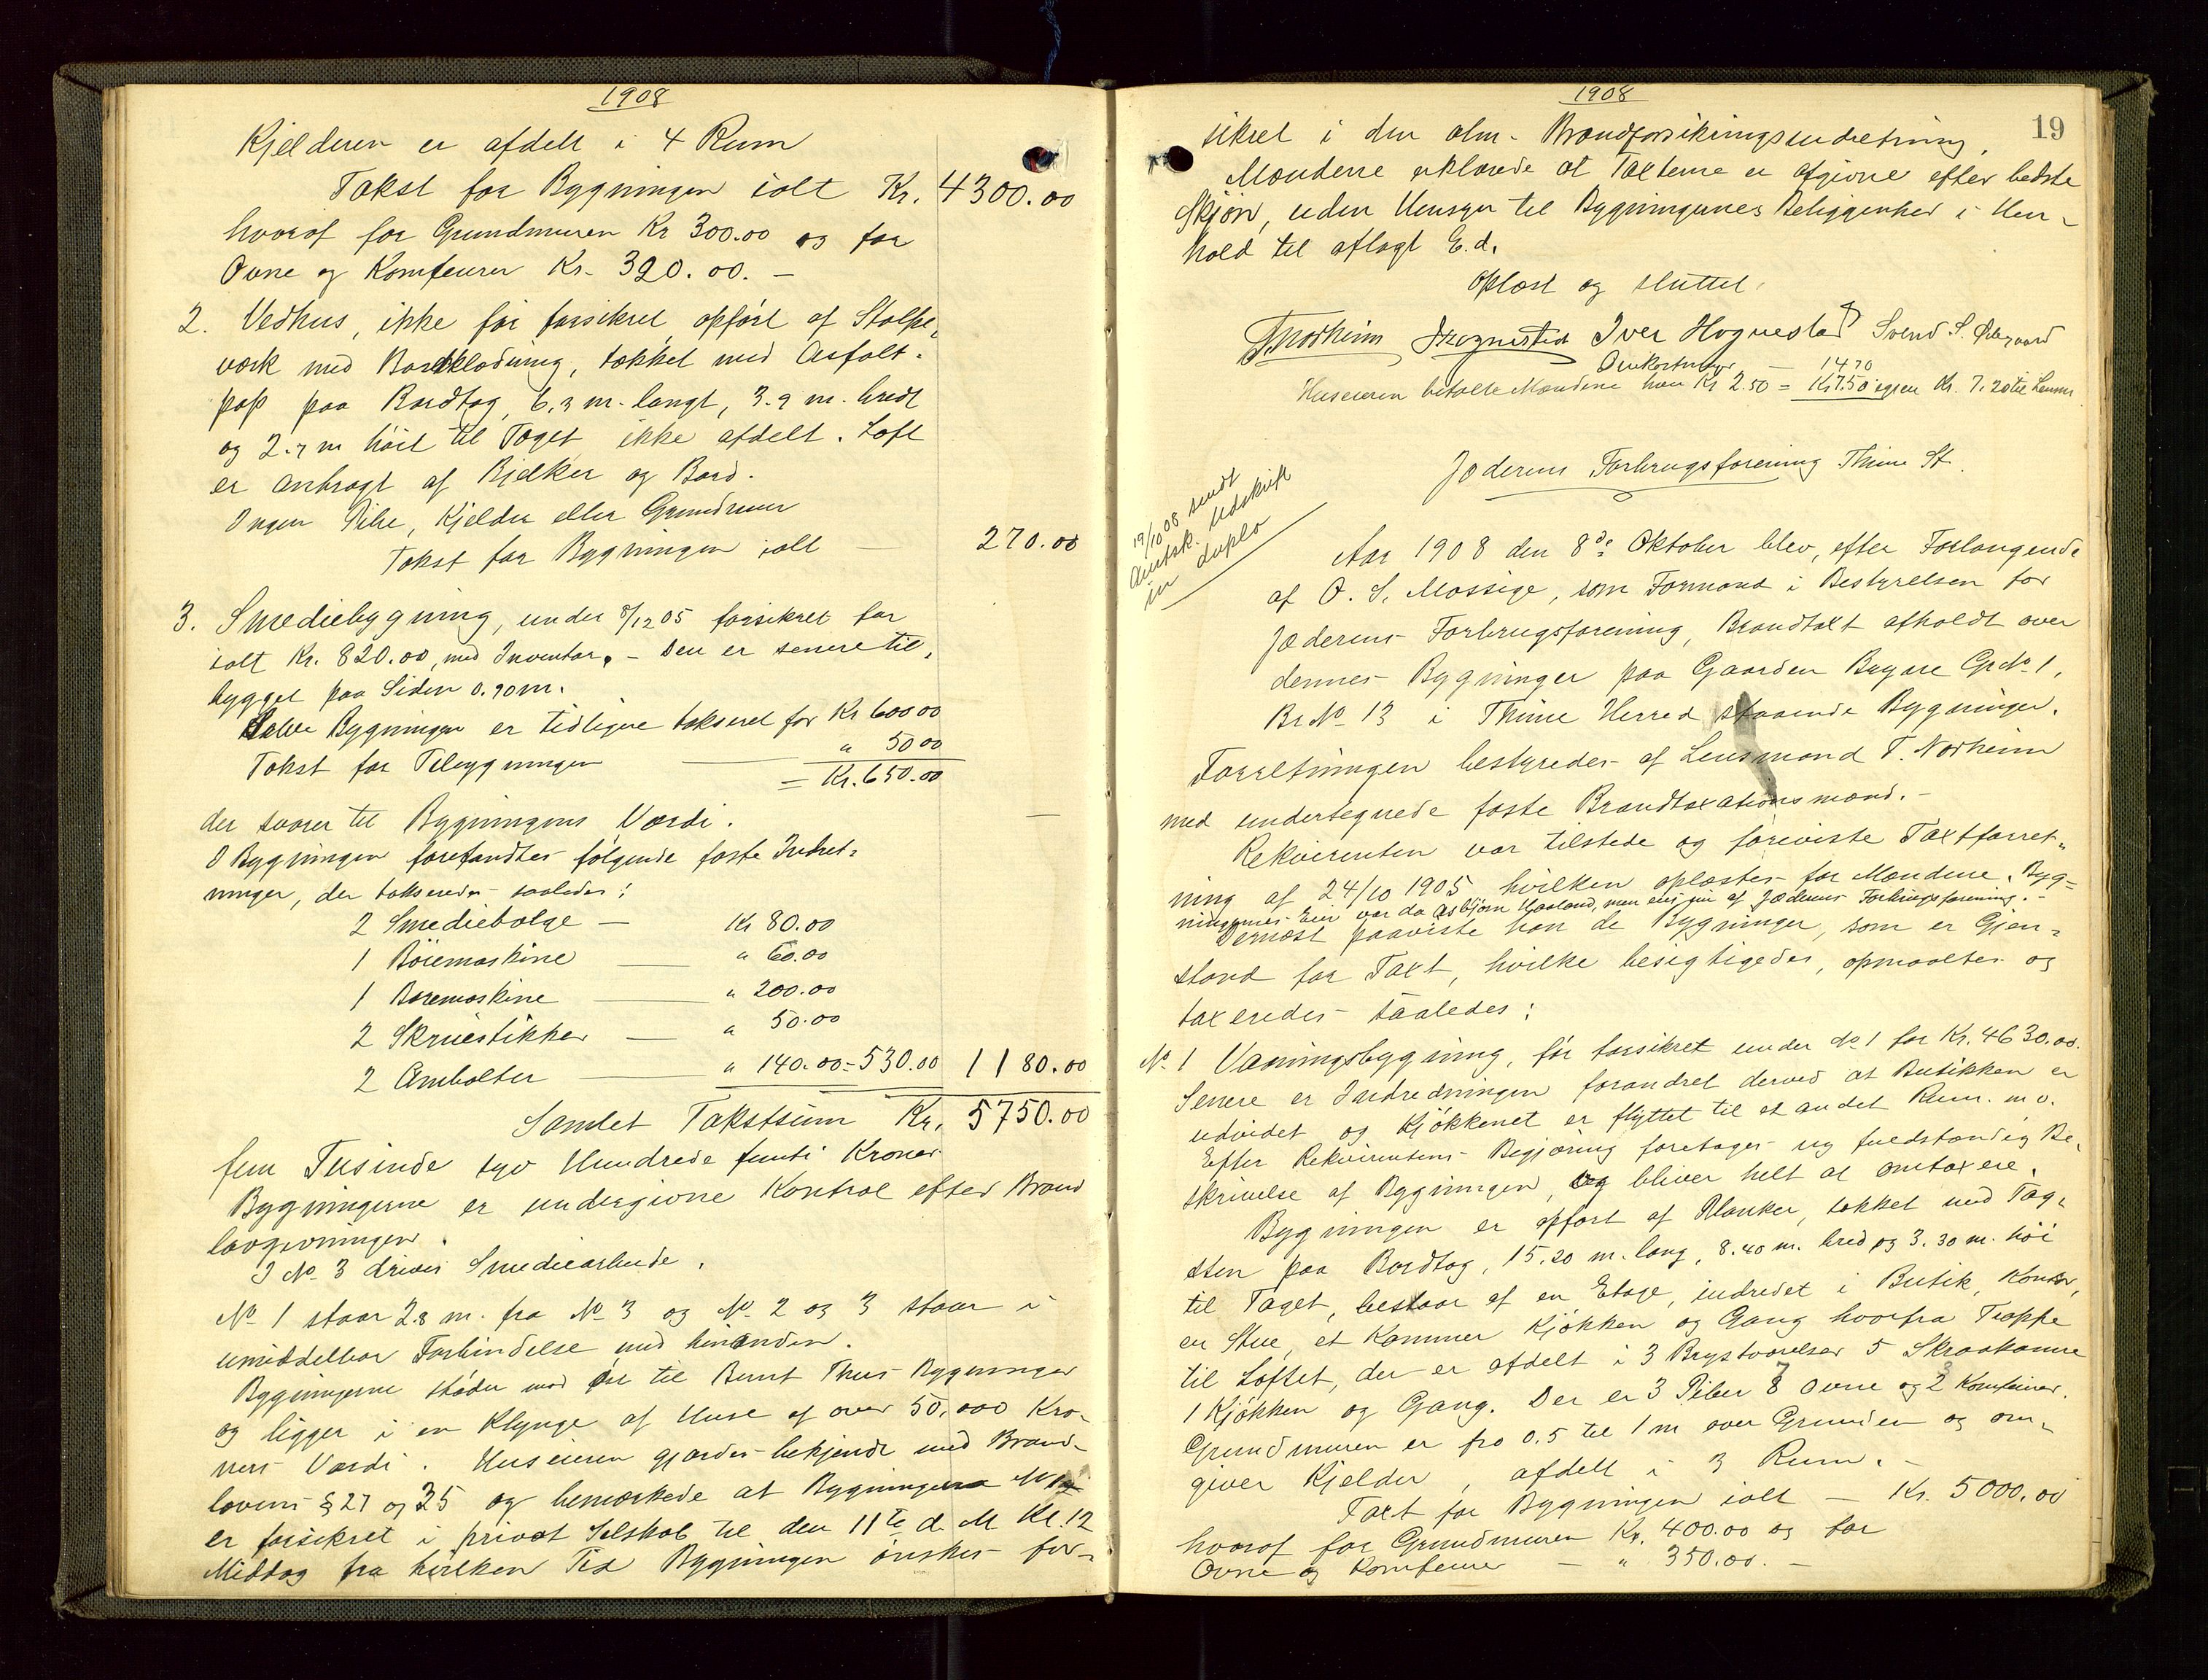 1908
Kjelderen er afdelt i 4 Rum
Takst for Bygningen ialt Kr. 4300.00
hvoraf for Grundmuren Kr 300.00 og for
Ovne og Komfeurer Kr. 320.00. —
2. Vedhus, ikke før forsikret opført af Stolpe-
værk med Bordklædning, tækket med Asfalt-
pap paa Bordtag, 6.3 m. langt, 3.9 m. bredt
og 2.7 m høit til Taget ikke afdelt. Loft
er anbragt af Bjelker og Bord.
Ingen Pibe, Kjelder eller Grundmur
Takst for Bygningen ialt — 270.00
3. Smediebygning, under 8/12 05 forsikret for
ialt Kr. 820.00, med Inventar. — Den er senere til-
bygget paa Siden 0.90 m.
Selve Bygningen er tidligere takseret for Kr 600 00
Takst for Tilbygningen — " 50 00
= Kr. 650.00
der svarer til Bygningens Værdi. —
I Bygningen forefandtes følgende faste Indret-
ninger, der takseredes saaledes:
2 Smediebælge — Kr 80.00
1 Bøiemaskine — " 60.00
1 Boremaskine — " 200.00
2 Skruestikker — " 50.00
2 Ambolter — " 140.00 = 530.00 1180.00
Samlet Takstsum Kr. 5750.00
fem Tusinde syv Hundrede femti Kroner
Bygningerne er undergivne Kontrol efter Brand
lovgivningen.
I No 3 drives Smediearbeide.
No 1 staar 2.8 m. fra No 3 og No 2 og 3 staar i
umiddelbar Forbindelse med hinanden.
Bygningerne støder mod Øst til Bernt Thus Bygninger
og ligger i en Klynge af Huse af over 50,000 Kro-
ners Værdi. Huseieren gjordes bekjendt med Brand-
lovens § 27 og 35 og bemærkede at Bygningerne No
er forsikret i privat Selskab til den 11te d. M. Kl. 12
Middag fra hvilken Tid Bygningen ønskes for-
1908
19
sikret i den alm. Brandforsikringsindretning.
Mændene erklærede at Taxterne er afgivne efter bedste
Skjøn, uden Hensyn til Bygningernes Beliggenhed i Hen-
hold til aflagt Ed.
Oplæst og sluttet.
T Norheim Iver Hognestad Svend S.
Omkostninger — 14 70
Huseieren betalte Mændene hver Kr 2.50 = Kr 7.50 ogsaa Kr. 7.20 til Lensm
Jæderens Forbrugsforening Thime St.
19/10 08 sendt
Amtsk. Udskrift
in duplo
Aar 1908 den 8de Oktober blev, efter Forlangende
af O. S. Mossige, som Formand i Bestyrelsen for
Jæderens Forbrugsforening, Brandtaxt afholdt over
dennes Bygninger paa Gaarden Bryne Gr No 1,
Br No 13 i Thime Herred staaende Bygninger.
Forretningen bestyredes af Lensmand T. Norheim
med undertegnede faste Brandtaxationsmænd. —
Rekvirenten var tilstede og foreviste Taxtforret-
ning af 24/10 1905, hvilken oplæstes for Mændene. Byg-
ningernes Eier var da Asbjørn Haaland, men eies nu af Jæderens Forbrugsforening. —
Dernæst paaviste han de Bygninger, som er Gjen-
stand for Taxt, hvilke besigtigedes, opmaaltes og
taxeredes saaledes:
No. 1 Vaaningsbygning, før forsikret under No 1 for Kr. 4630.00.
Senere er Indredningen forandret derved at Butikken er
udvidet og Kjøkkenet er flyttet til et andet Rum. m.v.
Efter Rekvirentens Begjæring foretages ny fuldstændig Be-
skrivelse af Bygningen, og bliver helt at omtaxere.
Bygningen er opført af Planker, tækket med Tag-
sten paa Bordtag, 15.20 m. lang, 8.40 m. bred og 3.30 m. høi
til Taget, bestaar af en Etage, indredet i Butik, Kontor,
en Stue, et Kammer Kjøkken og Gang hvorfra Trappe
til Loftet, der er afdelt i 3 Brystværelser 5 Skraakamre
1 Kjøkken og Gang. Der er 3 Piber 8 Ovne og 2 Komfeurer.
Grundmuren er fra 0.5 til 1 m over Grunden og om-
giver Kjelder, afdelt i 3 Rum. —
Taxt for Bygningen ialt — Kr. 5000.00
hvoraf for Grundmuren Kr. 400.00 og for
Ovne og Komfeurer — " 350.00. —